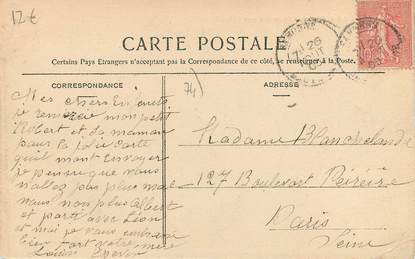 12€
CARTE POSTALE
Certains Pays Etrangers n'acceptant pas la Correspondance de ce côté, se renseigner à la Poste.
CORRESPONDANCE
ADRESSE
74)
Mes chers enfants
je remercie mon petit
Robert et sa maman
pour la jolie carte
quil mont envoyer
je pense que vous
nallez pas plus mal
nous non plus Albert
et parti avec Léon
et moi je vous embrasse
bien fort votre mère
Louise
Madame Blanchelande
127 Boulevart Péreire
Paris
Seine